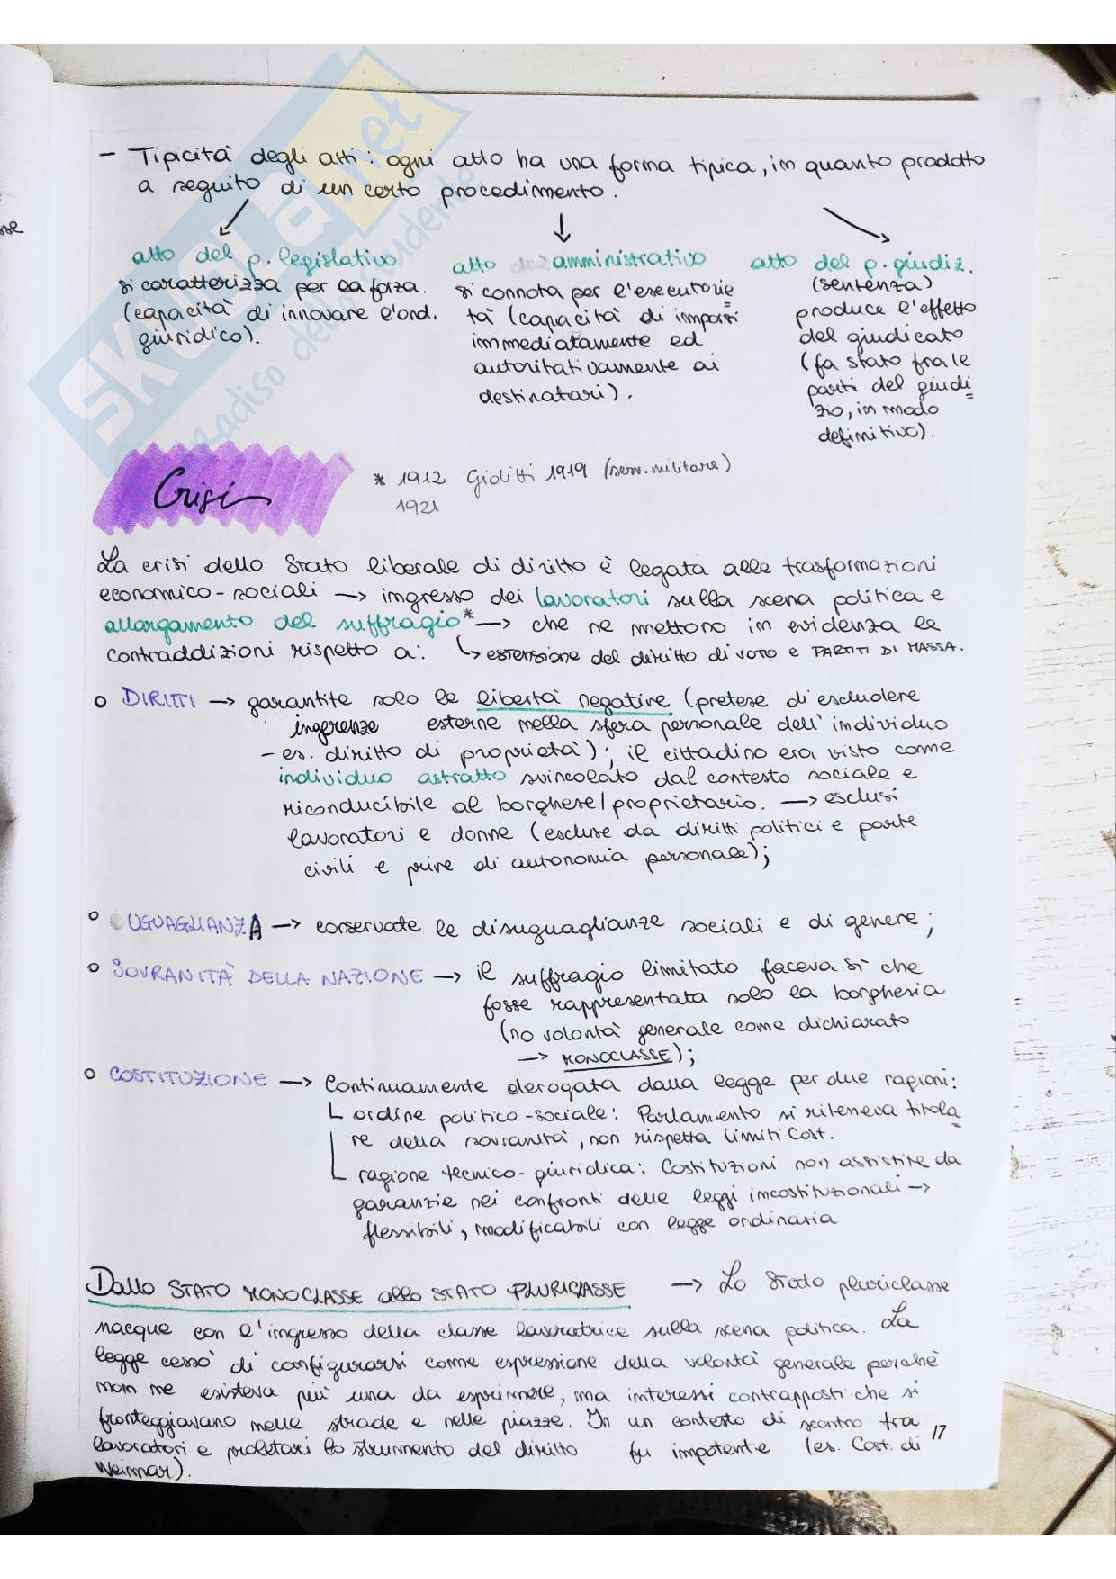 - Tipicità degli atti: ogni atto ha una forma tipica, in quanto prodotto
a seguito di un certo procedimento.
atto del p. legislativo
si caratterizza per la forza.
(capacità di innovare l'ord.
giuridico).
atto amministrativo
si connota per l'esecutorie
tà (capacità di imporsi
immediatamente ed
autoritativamente ai
destinatari).
atto del p. giudiz.
(sentenza)
produce l'effetto
del giudicato
(fa stato fra le
parti del giudi
zio, in modo
definitivo).
Crisi
* 1912 Giolitti 1919 (serv. militare)
1921
La crisi dello Stato liberale di diritto è legata alle trasformazioni
economico-sociali → ingresso dei lavoratori sulla scena politica e
allargamento del suffragio* → che ne mettono in evidenza le
contraddizioni rispetto a: ↳ estensione del diritto di VOTO e PARTITI DI MASSA.
o DIRITTI → garantite solo le libertà negative (pretese di escludere
ingerenze esterne nella sfera personale dell'individuo
- es. diritto di proprietà); il cittadino era visto come
individuo astratto svincolato dal contesto sociale e
riconducibile al borghese/proprietario. → esclusi
lavoratori e donne (escluse da diritti politici e parte
civili e prive di autonomia personale);
o UGUAGLIANZA → conservate le disuguaglianze sociali e di genere;
o SOVRANITÀ DELLA NAZIONE → il suffragio limitato faceva sì che
fosse rappresentata solo la borghesia
(no volontà generale come dichiarato
→ MONOCLASSE);
o COSTITUZIONE → Continuamente derogata dalla legge per due ragioni:
ordine politico-sociale: Parlamento si riteneva titola
re della sovranità, non rispetta limiti Cost.
ragione tecnico-giuridica: Costituzioni non assistite da
garanzie nei confronti delle leggi incostituzionali →
flessibili, modificabili con legge ordinaria
Dallo STATO MONOCLASSE allo STATO PLURICLASSE → Lo Stato pluriclasse
nacque con l'ingresso della classe lavoratrice sulla scena politica. La
legge cessò di configurarsi come espressione della volontà generale perché
non ne esisteva più una da esprimere, ma interessi contrapposti che si
fronteggiavano nelle strade e nelle piazze. In un contesto di scontro tra
lavoratori e proletari lo strumento del diritto fu impotente (es. Cost. di
Weimar).
17
SKUOLA.net
paradiso dello studente